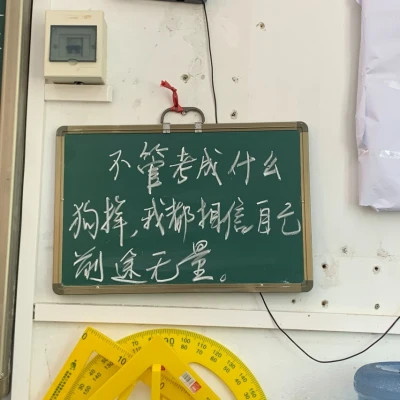 不管考成什么
狗样,我都相信自己
前途无量。